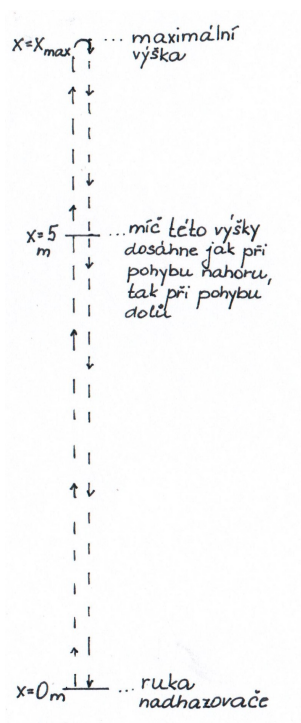 x=xmax ... maximální
výška
x=5 m ...míč této výšky
dosáhne jak při
pohybu nahoru,
tak při pohybu
dolů
x=0m ... ruka
nadhazovače